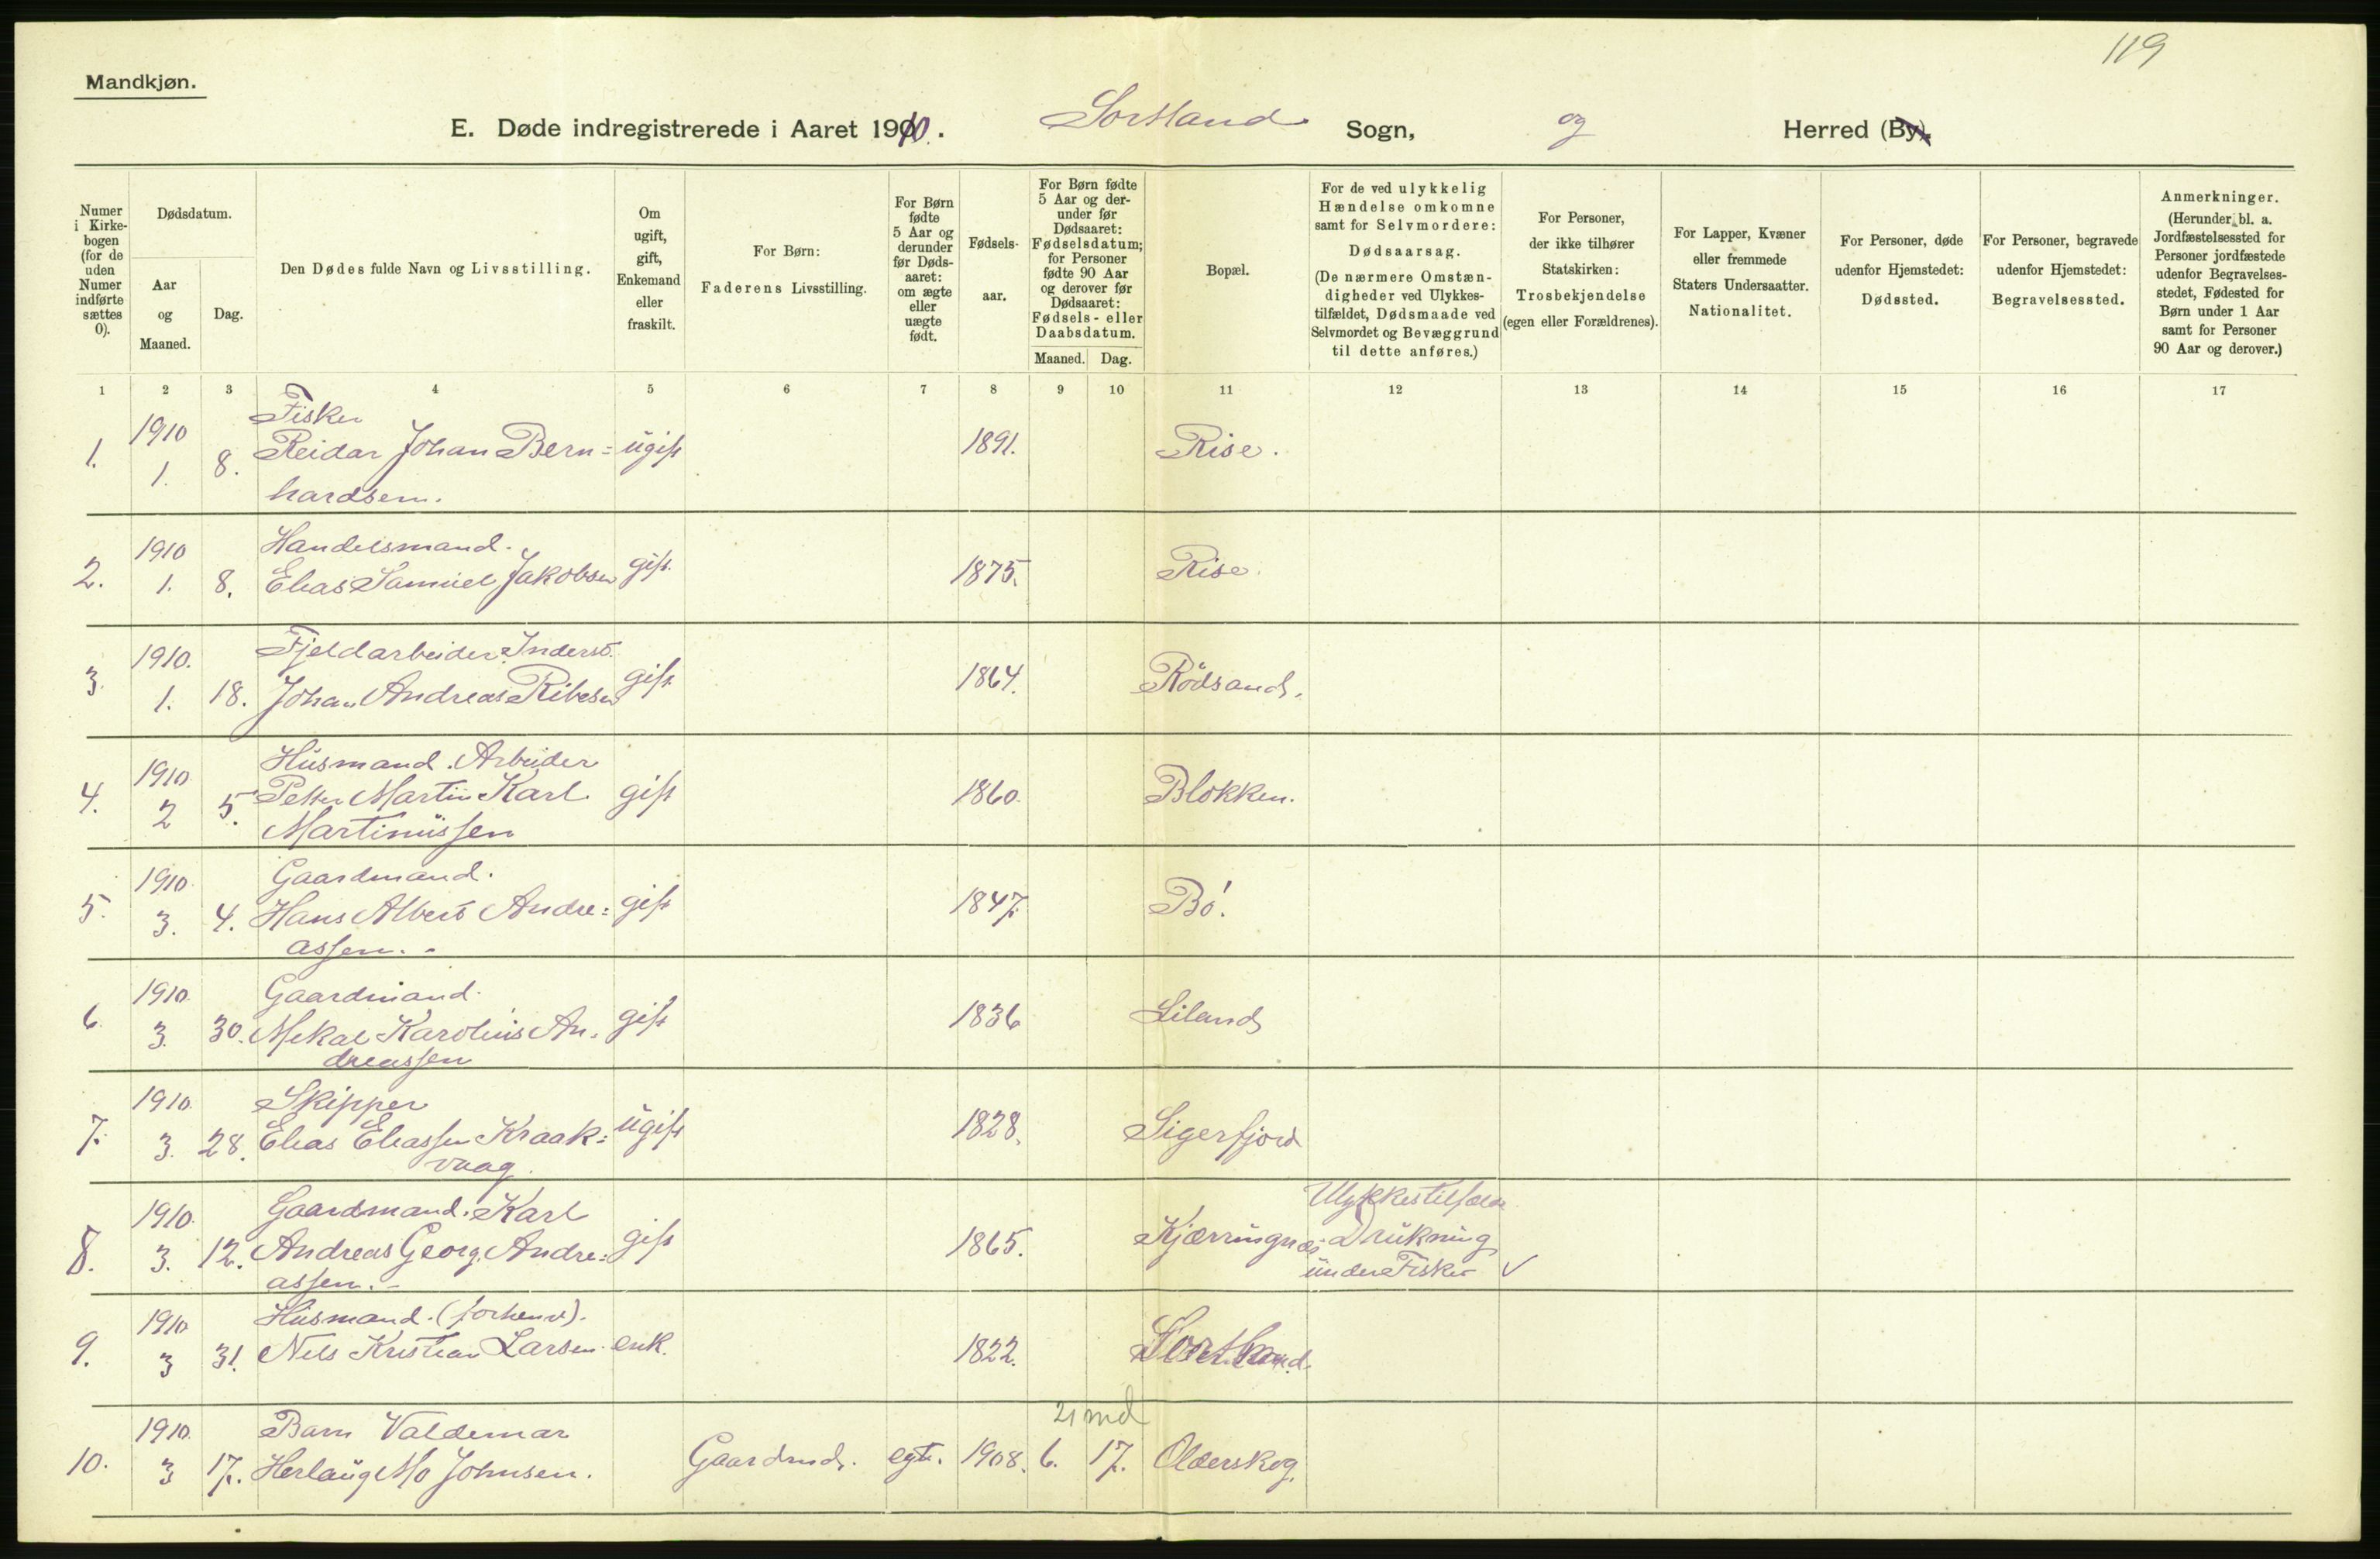 119
Mandkjøn.
E. Døde indregistrerede i Aaret 1910. Sortland Sogn, og Herred (By).
Numer i Kirkebogen (for de uden Numer indførte sættes 0).
Dødsdatum.
Aar og Maaned.
Dag.
Den Dødes fulde Navn og Livsstilling.
Om ugift, gift, Enkemand eller fraskilt.
For Børn: Faderens Livsstilling.
For Børn fødte 5 Aar og derunder før Dødsaaret: om ægte eller uægte født.
Fødselsaar.
For Børn fødte 5 Aar og derunder før Dødsaaret: Fødselsdatum; for Personer fødte 90 Aar og derover før Dødsaaret: Fødsels- eller Daabsdatum.
Maaned. Dag.
Bopæl.
For de ved ulykkelig Hændelse omkomne samt for Selvmordere: Dødsaarsag. (De nærmere Omstændigheder ved Ulykkestilfældet, Dødsmaade ved Selvmordet og Bevæggrund til dette anføres.)
For Personer, der ikke tilhører Statskirken: Trosbekjendelse (egen eller Forældrenes).
For Lapper, Kvæner eller fremmede Staters Undersaatter. Nationalitet.
For Personer, døde udenfor Hjemstedet: Dødssted.
For Personer, begravede udenfor Hjemstedet: Begravelsessted.
Anmerkninger. (Herunder bl. a. Jordfæstelsessted for Personer jordfæstede udenfor Begravelsesstedet, Fødested for Børn under 1 Aar samt for Personer 90 Aar og derover.)
1 2 3 4 5 6 7 8 9 10 11 12 13 14 15 16 17
1910 Fisker
1. 1. 8. Reidar Johan Bern= ugift 1891. Rise.
hardsen.
1910 Handelsmand.
2. 1. 8. Elias Samuel Jakobsen gift 1875. Rise.
1910. Fjeldarbeider. Inderst.
3. 1. 18. Johan Andreas Ribesen gift 1864. Rödsand.
1910 Husmand. Arbeider
4. 2 5. Petter Martin Karl gift 1860. Blokken.
Martinussen
1910 Gaardmand.
5. 3. 4. Hans Albert Andre= gift 1847. Bö.
assen.
1910. Gaardmand.
6. 3. 30. Mekal Karolius An= gift 1836 Liland
dreassen
1910. Skipper
7. 3. 28. Elias Eliassen Kraak= ugift 1828. Sigerfjord
vaag.
1910. Gaardmand. Karl Ulykkestilfælde
8. 3. 12. Andreas Georg Andre= gift 1865. Kjærringnæs Drukning
assen.- under Fiske ✓
1910 Husmand. (forhenv).
9. 3 31. Nils Kristian Larsen enk. 1822. Sortland.
1910. Barn Valdemar 21 md
10. 3 17. Herlaug Mo Johnsen. Gaardmd. egte. 1908. 6. 17. Olderskog.